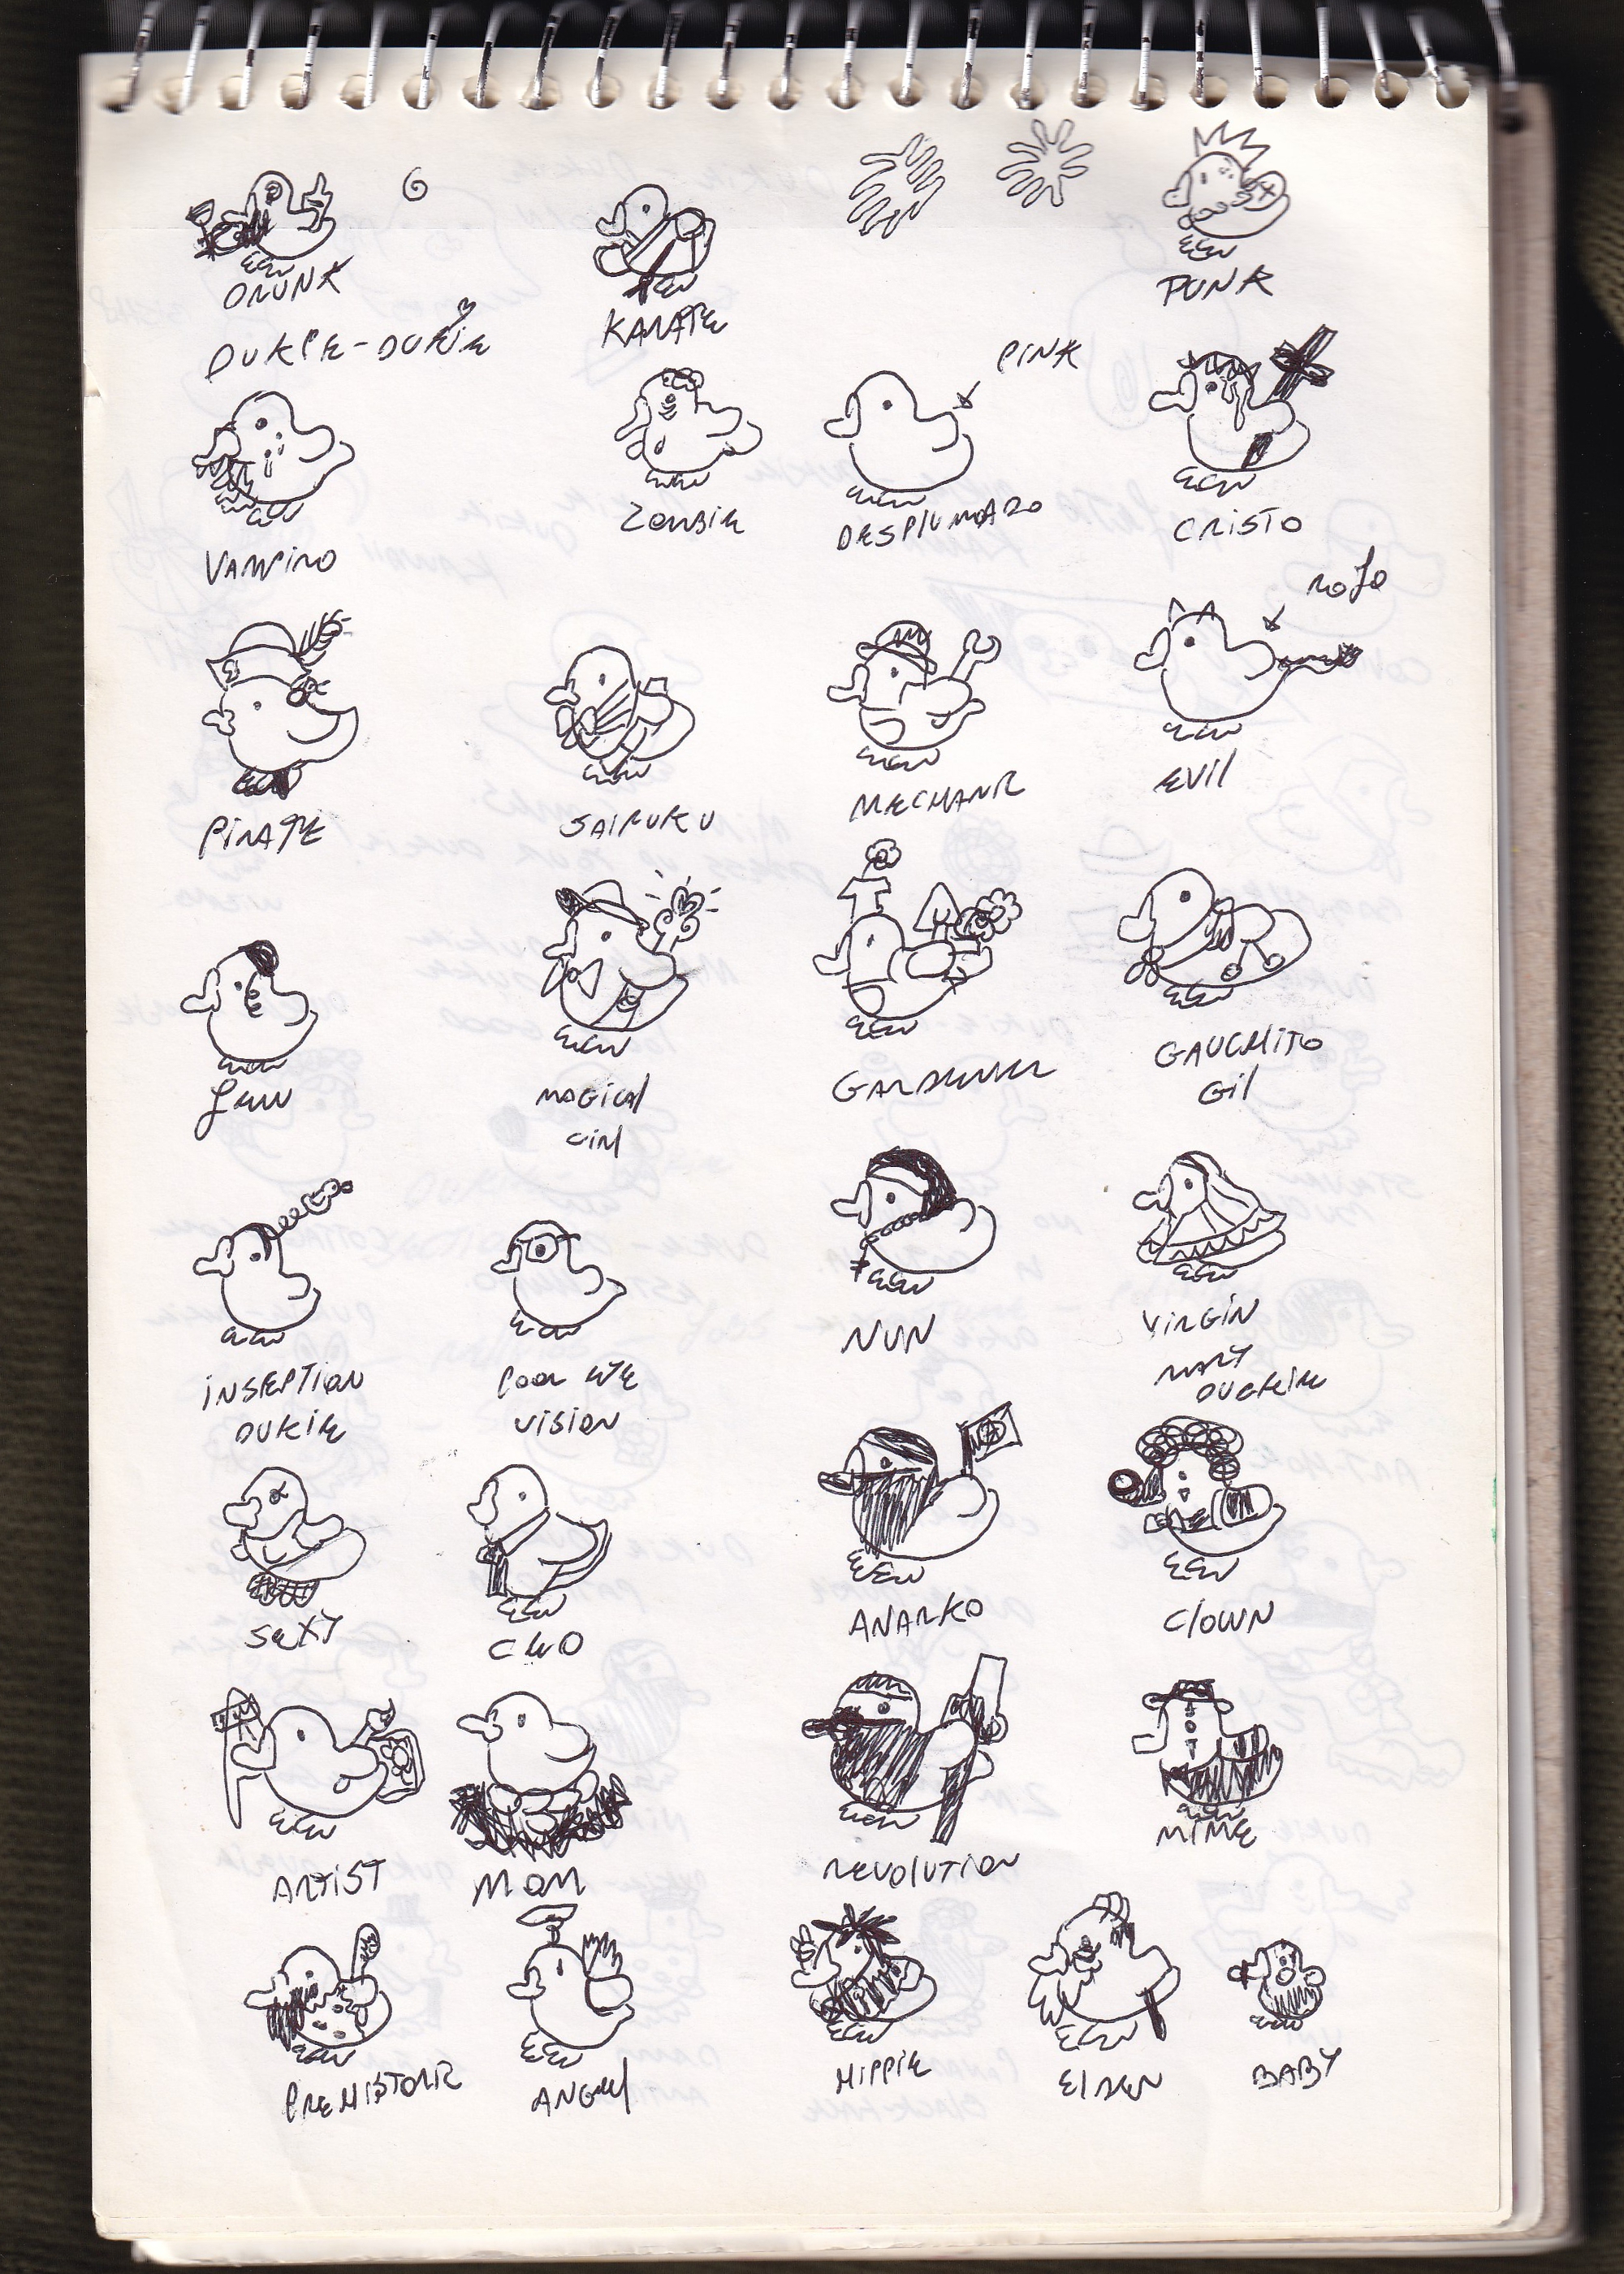 DRUNK
KARATE
PUNK
DUKIE-DUKIE
PINK
VAMPIRO
ZOMBIE
DESPLUMADO
CRISTO
ROJO
PIRATE
SAIKUKU
MECHANIK
EVIL
JEW
MAGICAL
GIRL
GARDENER
GAUCHITO
GIL
INSEPTION
DUKIE
POOR EYE
VISION
NUN
VIRGIN
MARY
DUCKIE
SEXY
CEO
ANARKO
CLOWN
ARTIST
MOM
REVOLUTION
MIME
PREHISTORIK
ANGEL
HIPPIE
ELDER
BABY